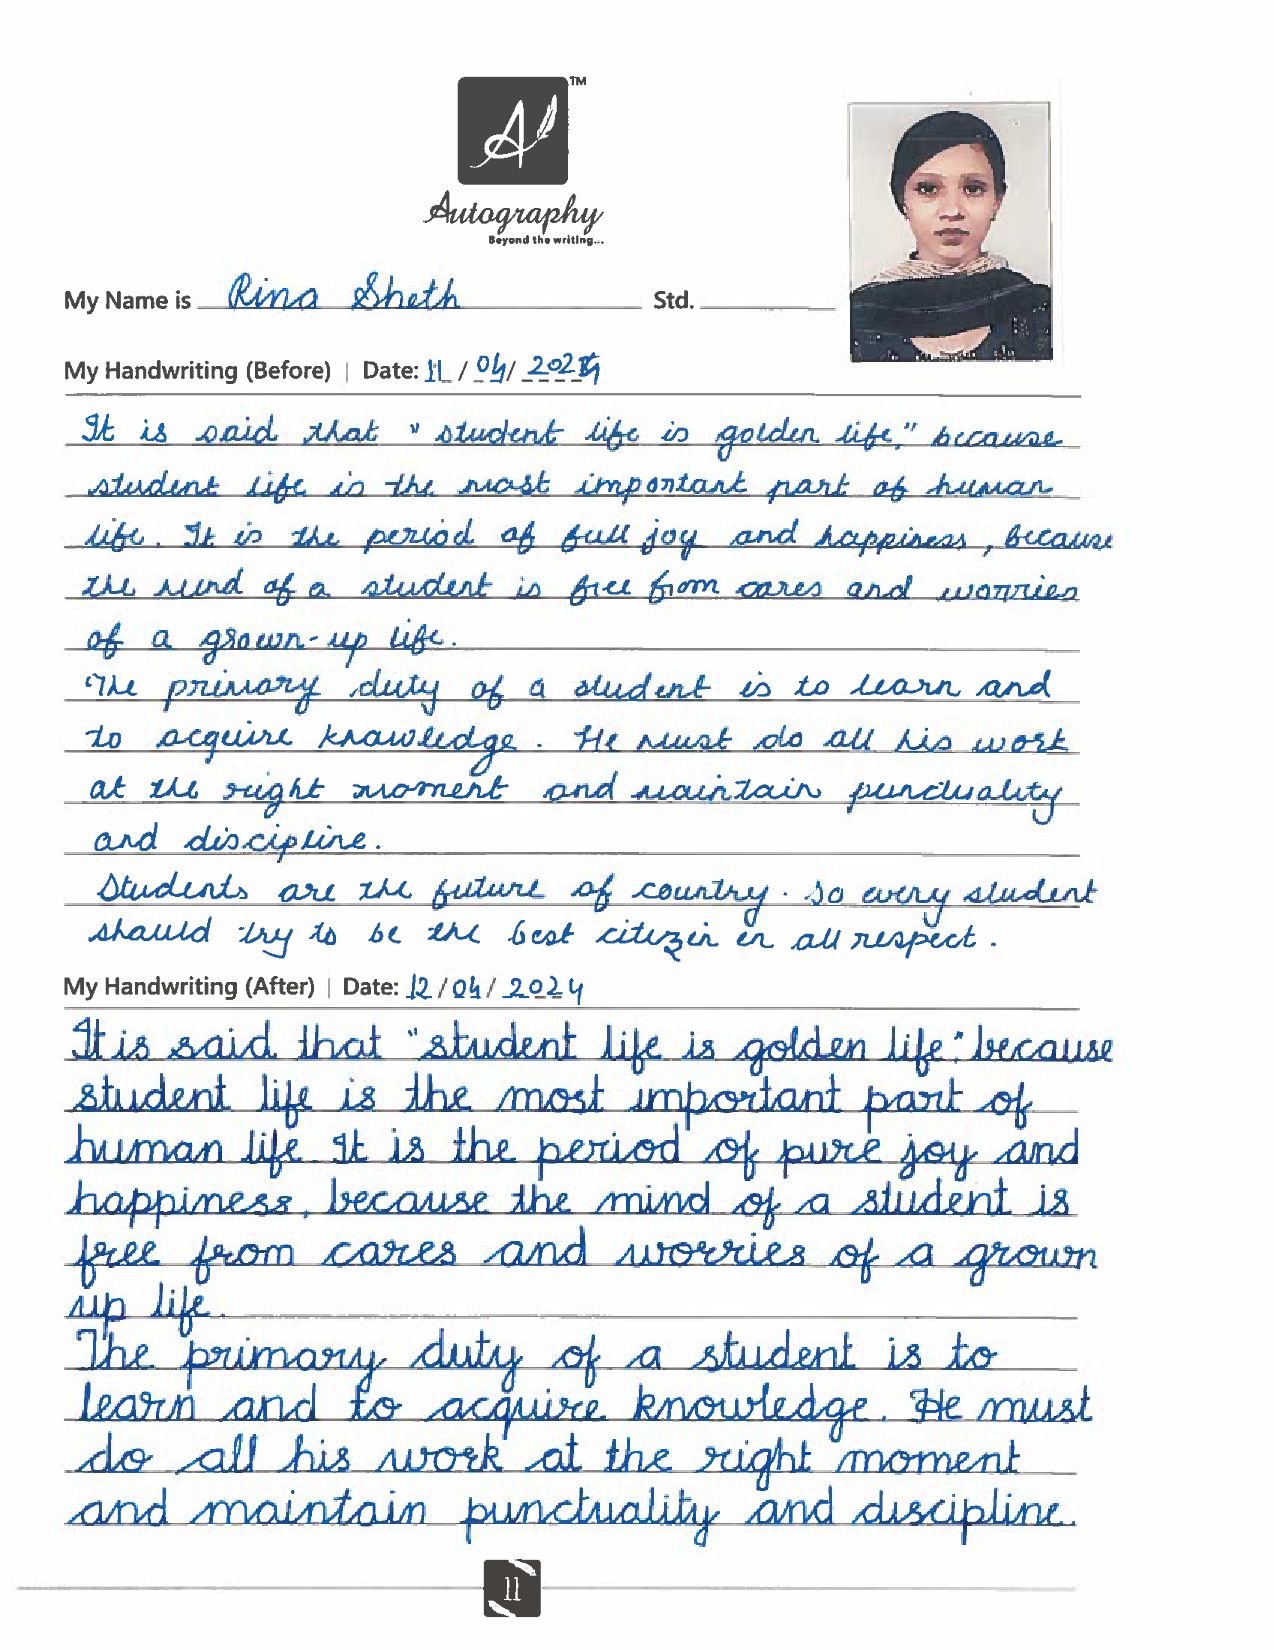 TM
A
Autography
Beyond the writing...
My Name is Rina Sheth Std.
My Handwriting (Before) | Date: 11 / 04 / 2024
It is said that " student life is golden life," because
student life is the most important part of human
life. It is the period of full joy and happiness, because
the mind of a student is free from cares and worries
of a grown-up life.
The primary duty of a student is to learn and
to acquire knowledge. He must do all his work
at the right moment and maintain punctuality
and discipline.
Students are the future of country. So every student
should try to be the best citizen in all respect.
My Handwriting (After) | Date: 12 / 04 / 2024
It is said that "student life is golden life" because
student life is the most important part of
human life. It is the period of pure joy and
happiness, because the mind of a student is
free from cares and worries of a grown
up life.
The primary duty of a student is to
learn and to acquire knowledge. He must
do all his work at the right moment
and maintain punctuality and discipline.
11